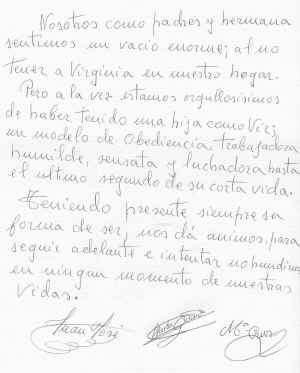 Nosotros como padres y hermana
sentimos un vacio enorme; al no
tener a Virginia en nuestro hogar.
Pero a la vez estamos orgullosisimos
de haber tenido una hija como Vir;
un modelo de Obediencia, trabajadora
humilde, sensata y luchadora hasta
el ultimo segundo de su corta vida.
Teniendo presente siempre su
forma de ser, nos dá animos, para
seguir adelante e intentar no hundirnos
en ningun momento de nuestras
vidas.
Juan José Mª